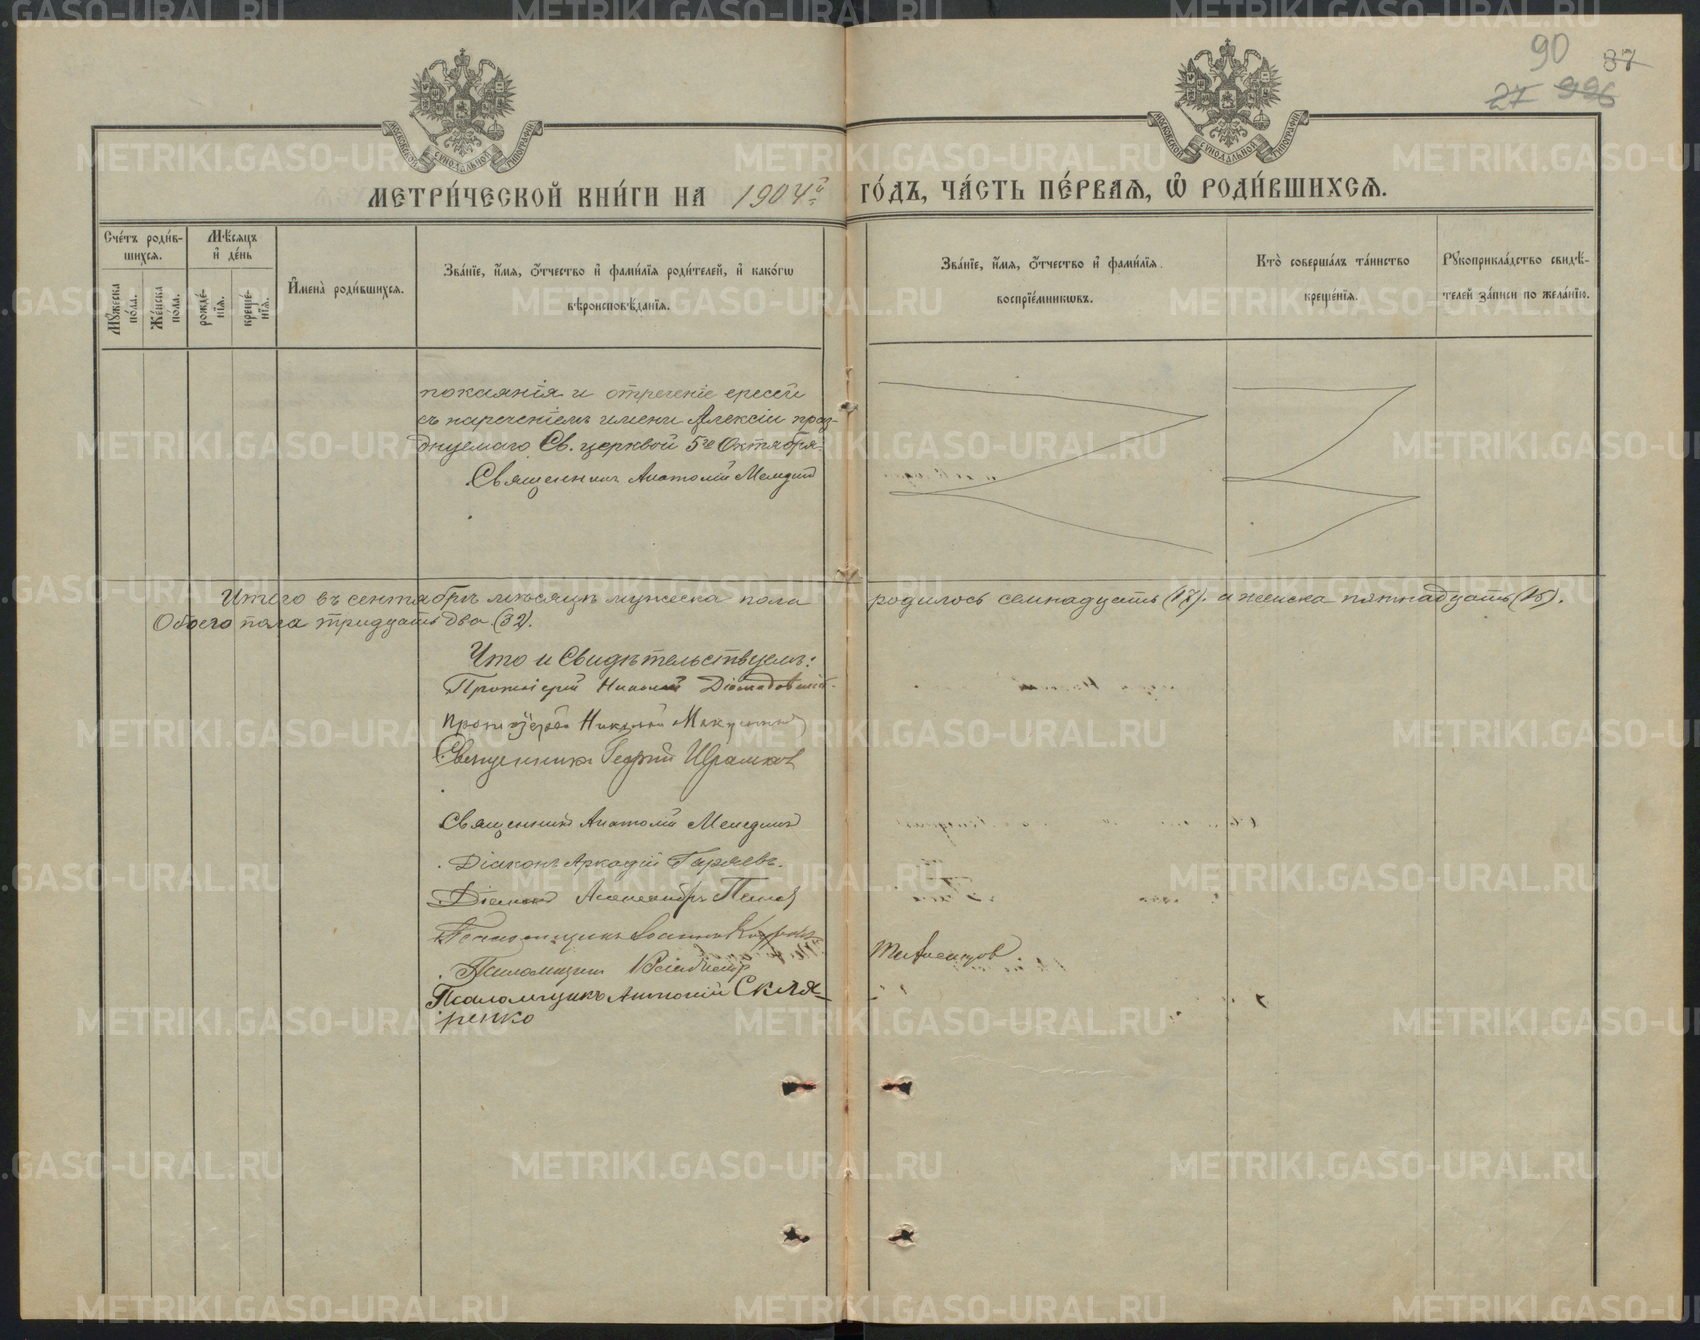 90 87
27 996
МОСКОВСКОЙ СѴНОДАЛЬНОЙ ТИПОГРАФІИ
МОСКОВСКОЙ СѴНОДАЛЬНОЙ ТИПОГРАФІИ
МЕТРИ́ЧЕСКОЙ КНИ́ГИ НА 1904й ГО́ДЪ, ЧА́СТЬ ПЕ́РВАѦ, Ѡ РОДИ́ВШИХСѦ.
Сче́тъ роди́в-
шихсѧ.
Мꙋ́жеска по́ла.
Же́нска по́ла.
Мѣ́сѧцъ
и҆ де́нь
рожде́-нїѧ.
креще́-нїѧ.
И҆мена̀ роди́вшихсѧ.
Зва́нїе, и҆́мѧ, ѻ҆́тчество и҆ фами́лїѧ роди́телей, и҆ како́гѡ
вѣроисповѣ́данїѧ.
Зва́нїе, и҆́мѧ, ѻ҆́тчество и҆ фами́лїѧ
воспрїе́мникѡвъ.
Кто̀ соверша́лъ та́инство
креще́нїѧ.
Рꙋкоприкла́дство свидѣ́-
телей за́писи по жела́нїю.
покаянія и отреченіе ересей
съ нареченіемъ имени Алексіи праз-
днуемаго Св. церквой 5го Октября.
Священникъ Анатолій
Итого въ сентябрѣ мѣсяцѣ мужеска пола родилось семнадцать (17). а женска пятнадцать (15).
Обоего пола тридцать два. (32).
Что и Свидѣтельствуемъ:
Протоіерей Николай
Протоіерей Николай
Священникъ Георгій
Священникъ Анатолій
Діаконъ Аркадій Гаряевъ.
Діаконъ Александръ
Псаломщикъ
Псаломщикъ
Псаломщикъ Антоній Скля-
ренко
METRIKI.GASO-URAL.RU